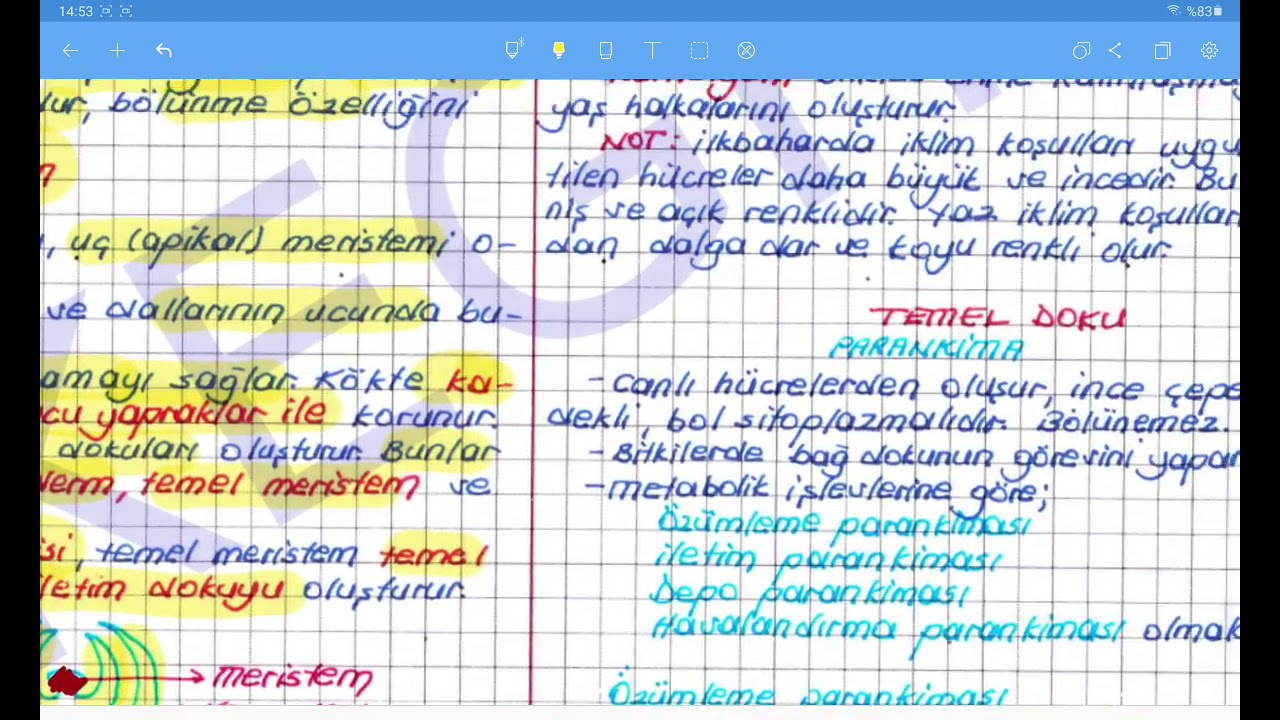 14:53
%83
lur, bölünme özelliğini
, uç (apikal) meristemi o-
ve dallarının ucunda bu-
amayı sağlar. Kökte ka-
cu yapraklar ile korunur.
dokuları oluşturur. Bunlar
derm, temel meristem ve
isi, temel meristem temel
letim dokuyu oluşturur.
meristem
yaş halkalarını oluşturur.
NOT: ilkbaharda iklim koşulları uygu
tilen hücreler daha büyük ve incedir. Bu
niş ve açık renklidir. Yaz iklim koşulları
dan dalga dar ve koyu renkli olur.
TEMEL DOKU
PARANKİMA
-Canlı hücrelerden oluşur, ince çepe
dekli, bol sitoplazmalıdır. Bölünemez.
-Bitkilerde bağ dokunun görevini yapar
-metabolik işlevlerine göre;
Özümleme parankiması
iletim parankiması
Depo parankiması
Havalandırma parankiması olmak
Özümleme parankiması